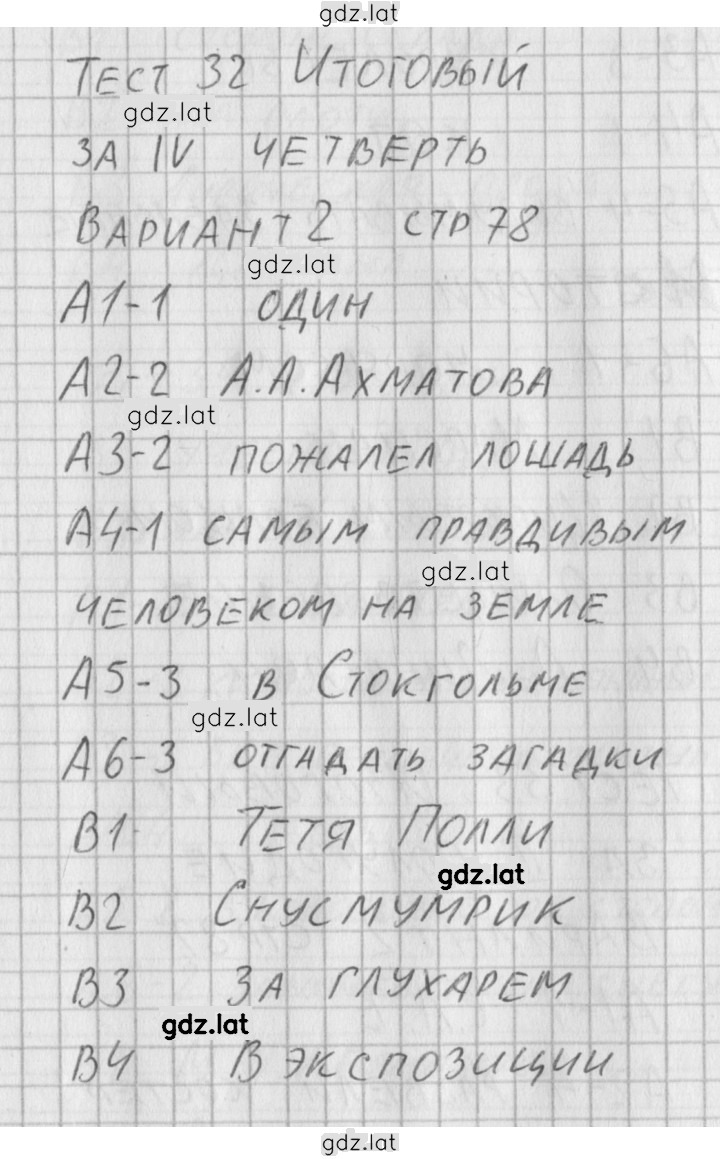 gdz.lat
Тест 32 Итоговый
gdz.lat
за IV четверть
Вариант 2 стр 78
gdz.lat
А1-1 один
А2-2 А.А.Ахматова
gdz.lat
А3-2 пожалел лошадь
А4-1 самым правдивым
gdz.lat
человеком на земле
А5-3 в Стокгольме
gdz.lat
А6-3 отгадать загадки
В1 Тетя Полли
gdz.lat
В2 Снусмумрик
В3 за глухарем
gdz.lat
В4 В экспозиции
gdz.lat